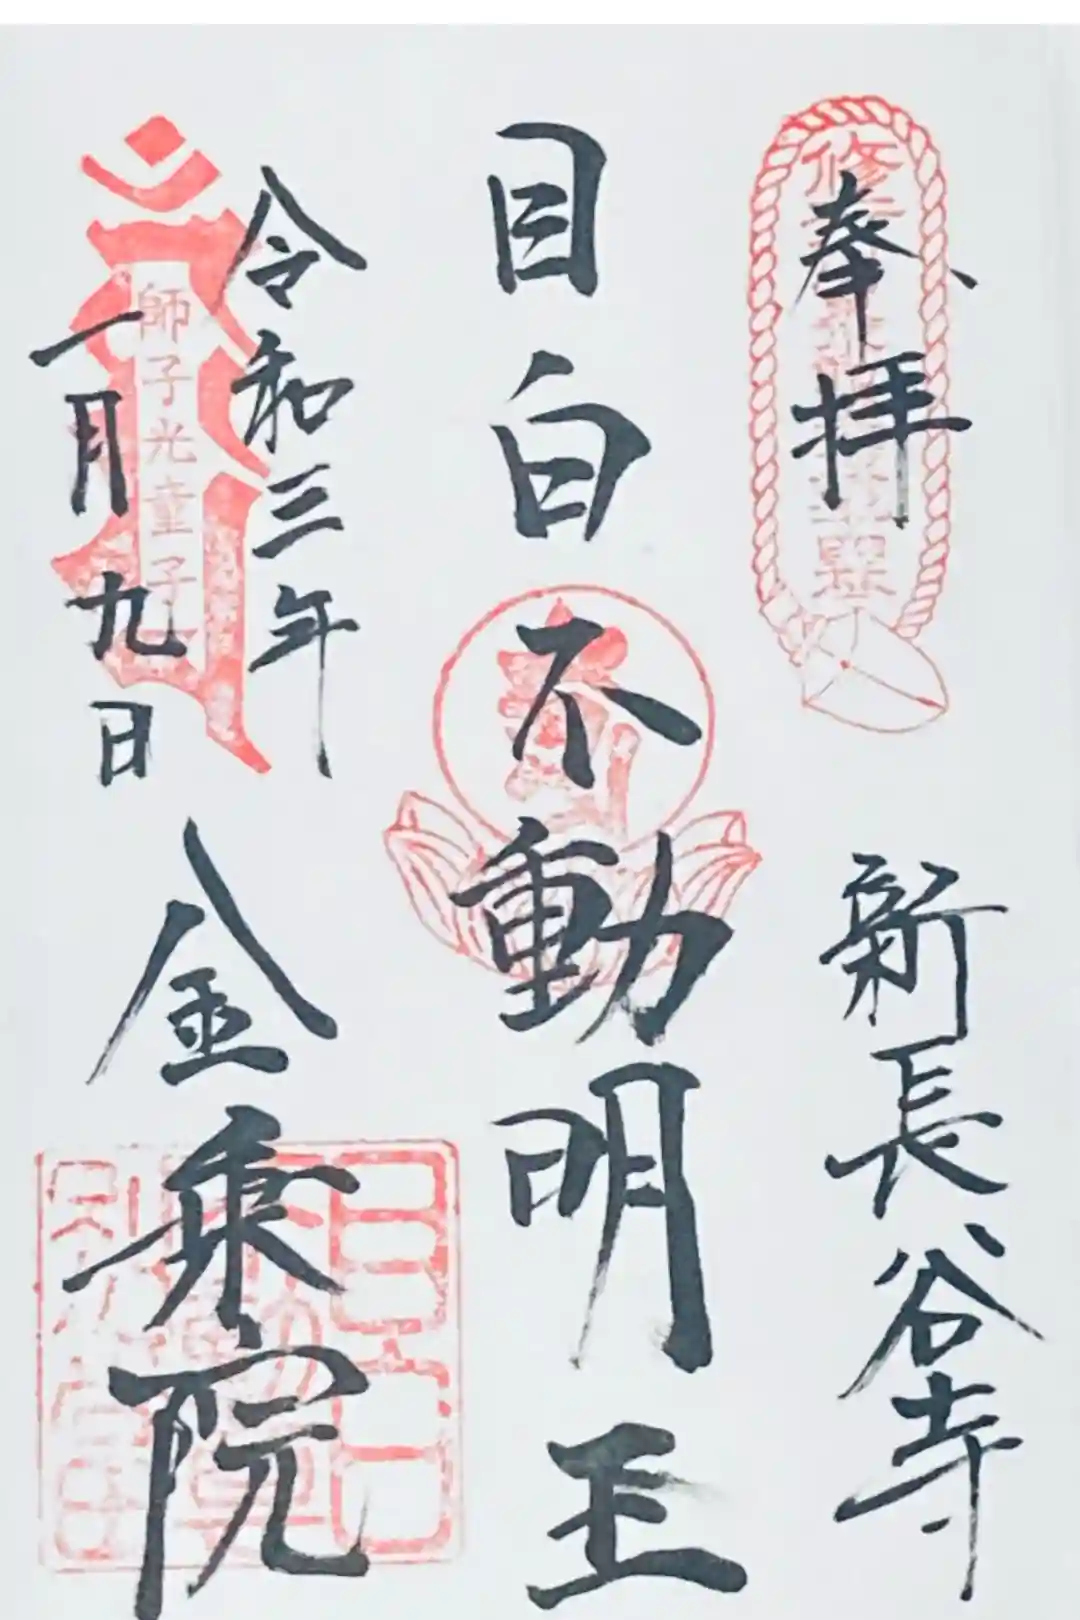 奉拝
新長谷寺
目白不動明王
令和三年
一月九日
師子光童子
金乗院